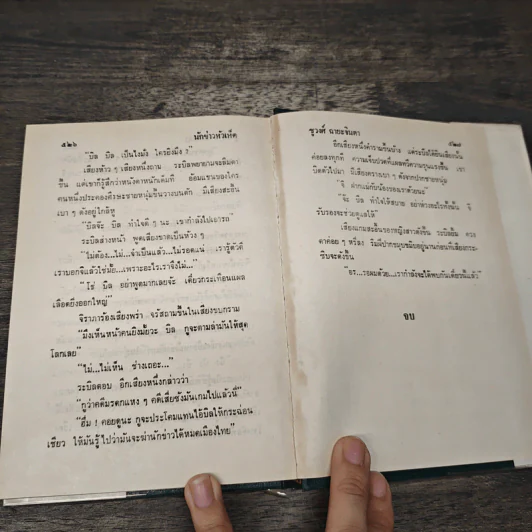 ๕๒๖ นักข่าวหัวเห็ด
"บิล บิล เป็นไงมั่ง ใครยิงมึง ?"
เสียงห้าว ๆ เสียงหนึ่งถาม ระบิลพยายามจะลืมตา
ขึ้น แต่เขาก็รู้สึกว่าหนังตาหนักเต็มที อ้อมแขนของใคร
คนหนึ่งประคองศีรษะชายหนุ่มขึ้นวางบนตัก มีเสียงสะอื้น
เบา ๆ ดังอยู่ใกล้หู
"บิลจ๊ะ บิล ทำใจดี ๆ นะ เขากำลังไปเอารถ"
ระบิลส่ายหน้า พูดเสียงขาดเป็นห้วง ๆ
"ไม่ต้อง...ไม่...จำเป็นแล้ว...ไม่รอดแน่ เรารู้ตัวดี
เราบอกจิแล้วใช่มั้ย...เพราะอะไรเราจึงไม่..."
"โธ่ บิล อย่าพูดมากเลยจ้ะ เดี๋ยวกระเทือนแผล
เลือดยิ่งออกใหญ่"
จิราภาร้องเสียงพร่า จรัสถามขึ้นในเสียงขบกราม
"มึงเห็นหน้าคนยิงมั้ยวะ บิล กูจะตามล่ามันให้สุด
โลกเลย"
"ไม่...ไม่เห็น ช่างเถอะ..."
ระบิลตอบ อีกเสียงหนึ่งกล่าวว่า
"กูว่าคดีมรดกแหง ๆ คดีเสี่ยซังมันเกมไปแล้วนี่"
"ฮึ่ม ! คอยดูนะ กูจะประโคมแทนไอ้บิลให้กระฉ่อน
เชียว ให้มันรู้ไปว่ามันจะฆ่านักข่าวได้หมดเมืองไทย"
ชูวงศ์ ฉายะจินดา ๕๒๗
อีกเสียงหนึ่งคำรามขึ้นบ้าง แต่ระบิลได้ยินเสียงนั้น
ค่อยลงทุกที ความเจ็บปวดที่แผลทวีความรุนแรงขึ้น เขา
บิดตัวไปมา มีเสียงครางเบา ๆ ดังจากปากชายหนุ่ม
"จิ ฝากแม่กับน้องของเราด้วยนะ"
"จ้ะ บิล ทำใจให้สบาย อย่าห่วงอะไรทั้งนั้น จิ
รับรองจะช่วยดูแลให้"
เสียงแกมสะอื้นของหญิงสาวดังขึ้น ระบิลยิ้ม ดวง
ตาค่อย ๆ หรี่ลง ริมฝีปากขมุบขมิบอยู่นานก่อนที่เสียงกระ-
ซิบจะดังขึ้น
"อร...รอผมด้วย...เรากำลังจะได้พบกันเดี๋ยวนี้แล้ว"
จบ